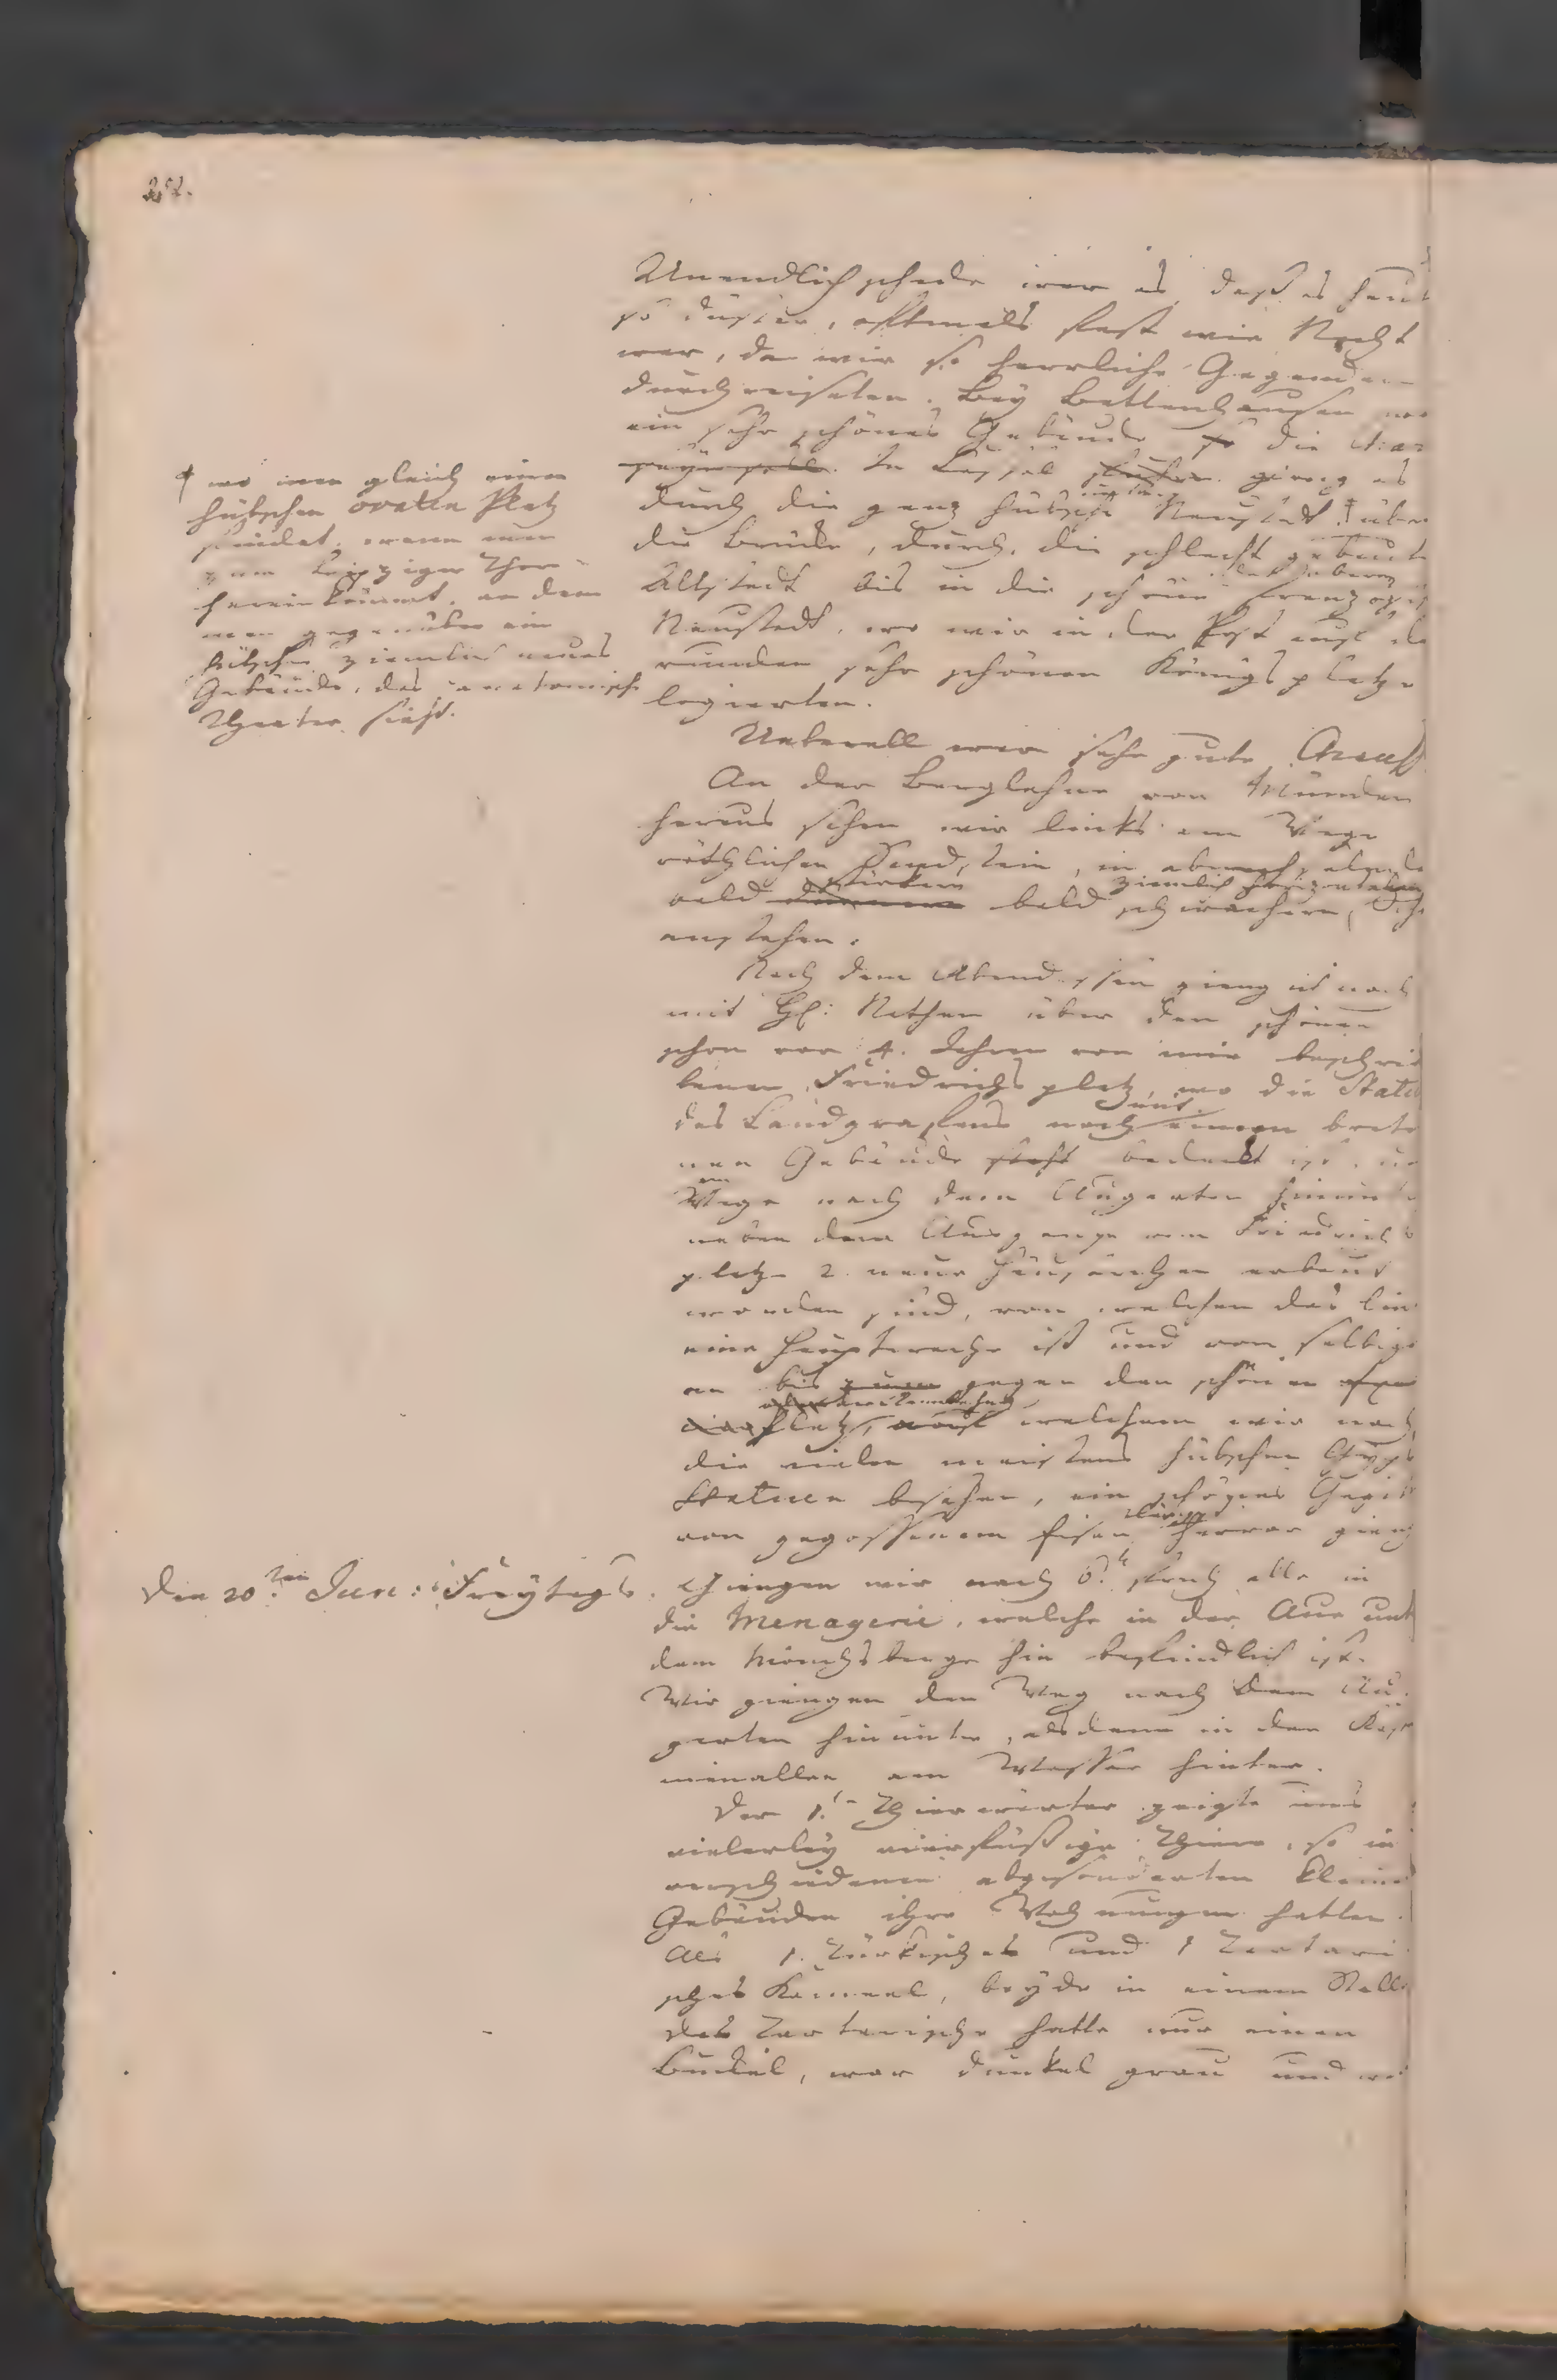 Unendlich schade war es, daß es heut
so düster, oftmals fast wie Nacht
war, da wir so herrliche Gegenden
durchreiseten. Bey Bettenhausen
ein sehr schönes Gebäude die
In Cassel gieng es
durch die ganz hübsche Neustadt ‡ über
die Brücke, durch die schlecht gebaute
Altstadt bis in die schöne
Neustadt, wo wir in der Post auf de
runden sehr schönen Königsplatze
logierten.
‡ wo man gleich einen
hübschen ovalen Platz
findet, wenn man
zum Leipziger Thore
herein kömmt, an dem
man gegenüber ein
hübsches ziemlich neues
Gebäude, das anatomische
Theater sieht.
Ueberall war sehr gute Chauss
An der Berglehne von Münden
heraus sahen wir links am Wege
röthlichen Sandstein, in
bald stärkern bald schwächern, ziemlich horizontalen
anstehen.
Nach dem Abendessen gieng ich noch
mit H: Nathen über den schönen
schon vor 4. Jahren von mir beschrie
benen Friedrichsplatz, wo die Statu
des Landgrafens noch mit einem brete
nen Gebäude bedeckt ist,
Wege nach dem Augarten hinunte
neben dem Ausgange vom Friedrichs
platze 2. neue Häuserchen erbaut
worden sind, von welchen das Ein
eine Hauptwache ist und von selbige
an bis gegen den schönen
Platz, auf welchem wir noch
die vielen meistens hübschen Gyps
Statuen besahen, ein schönes Gegit
von gegossenem Eisen hervor gieng
Den 20ten Jun: Freytags. Giengen wir nach 6. früh alle in
die Menagerie, welche in der Aue unt
dem Weinberge hin befindlich ist.
Wir giengen den Weg nach dem Au
garten hinunter, alsdann in der
allee am Wasser hinter.
Der 1te Thierwärter zeigte uns
vielerley vierfüßige Thiere, so in
verschiedenen abgesonderten kleine
Gebäuden ihre Wohnungen hatten.
Als 1. Türkisches und 1 Tartari
sches Kameel, beyde in einem Stall
das Tartarische hatte nur einen
Buckel, war dunkel grau und